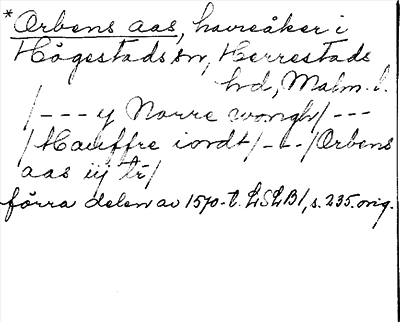 *Orbens aas, havreåker i
Högestads sn, Herrestads
hd, Malm. l.
/--- y Norre wongh/---
/Hauffre iordt/---/Orbens
aas iij tr/
förra delen av 1570-t. LSLB1, s. 235. orig.